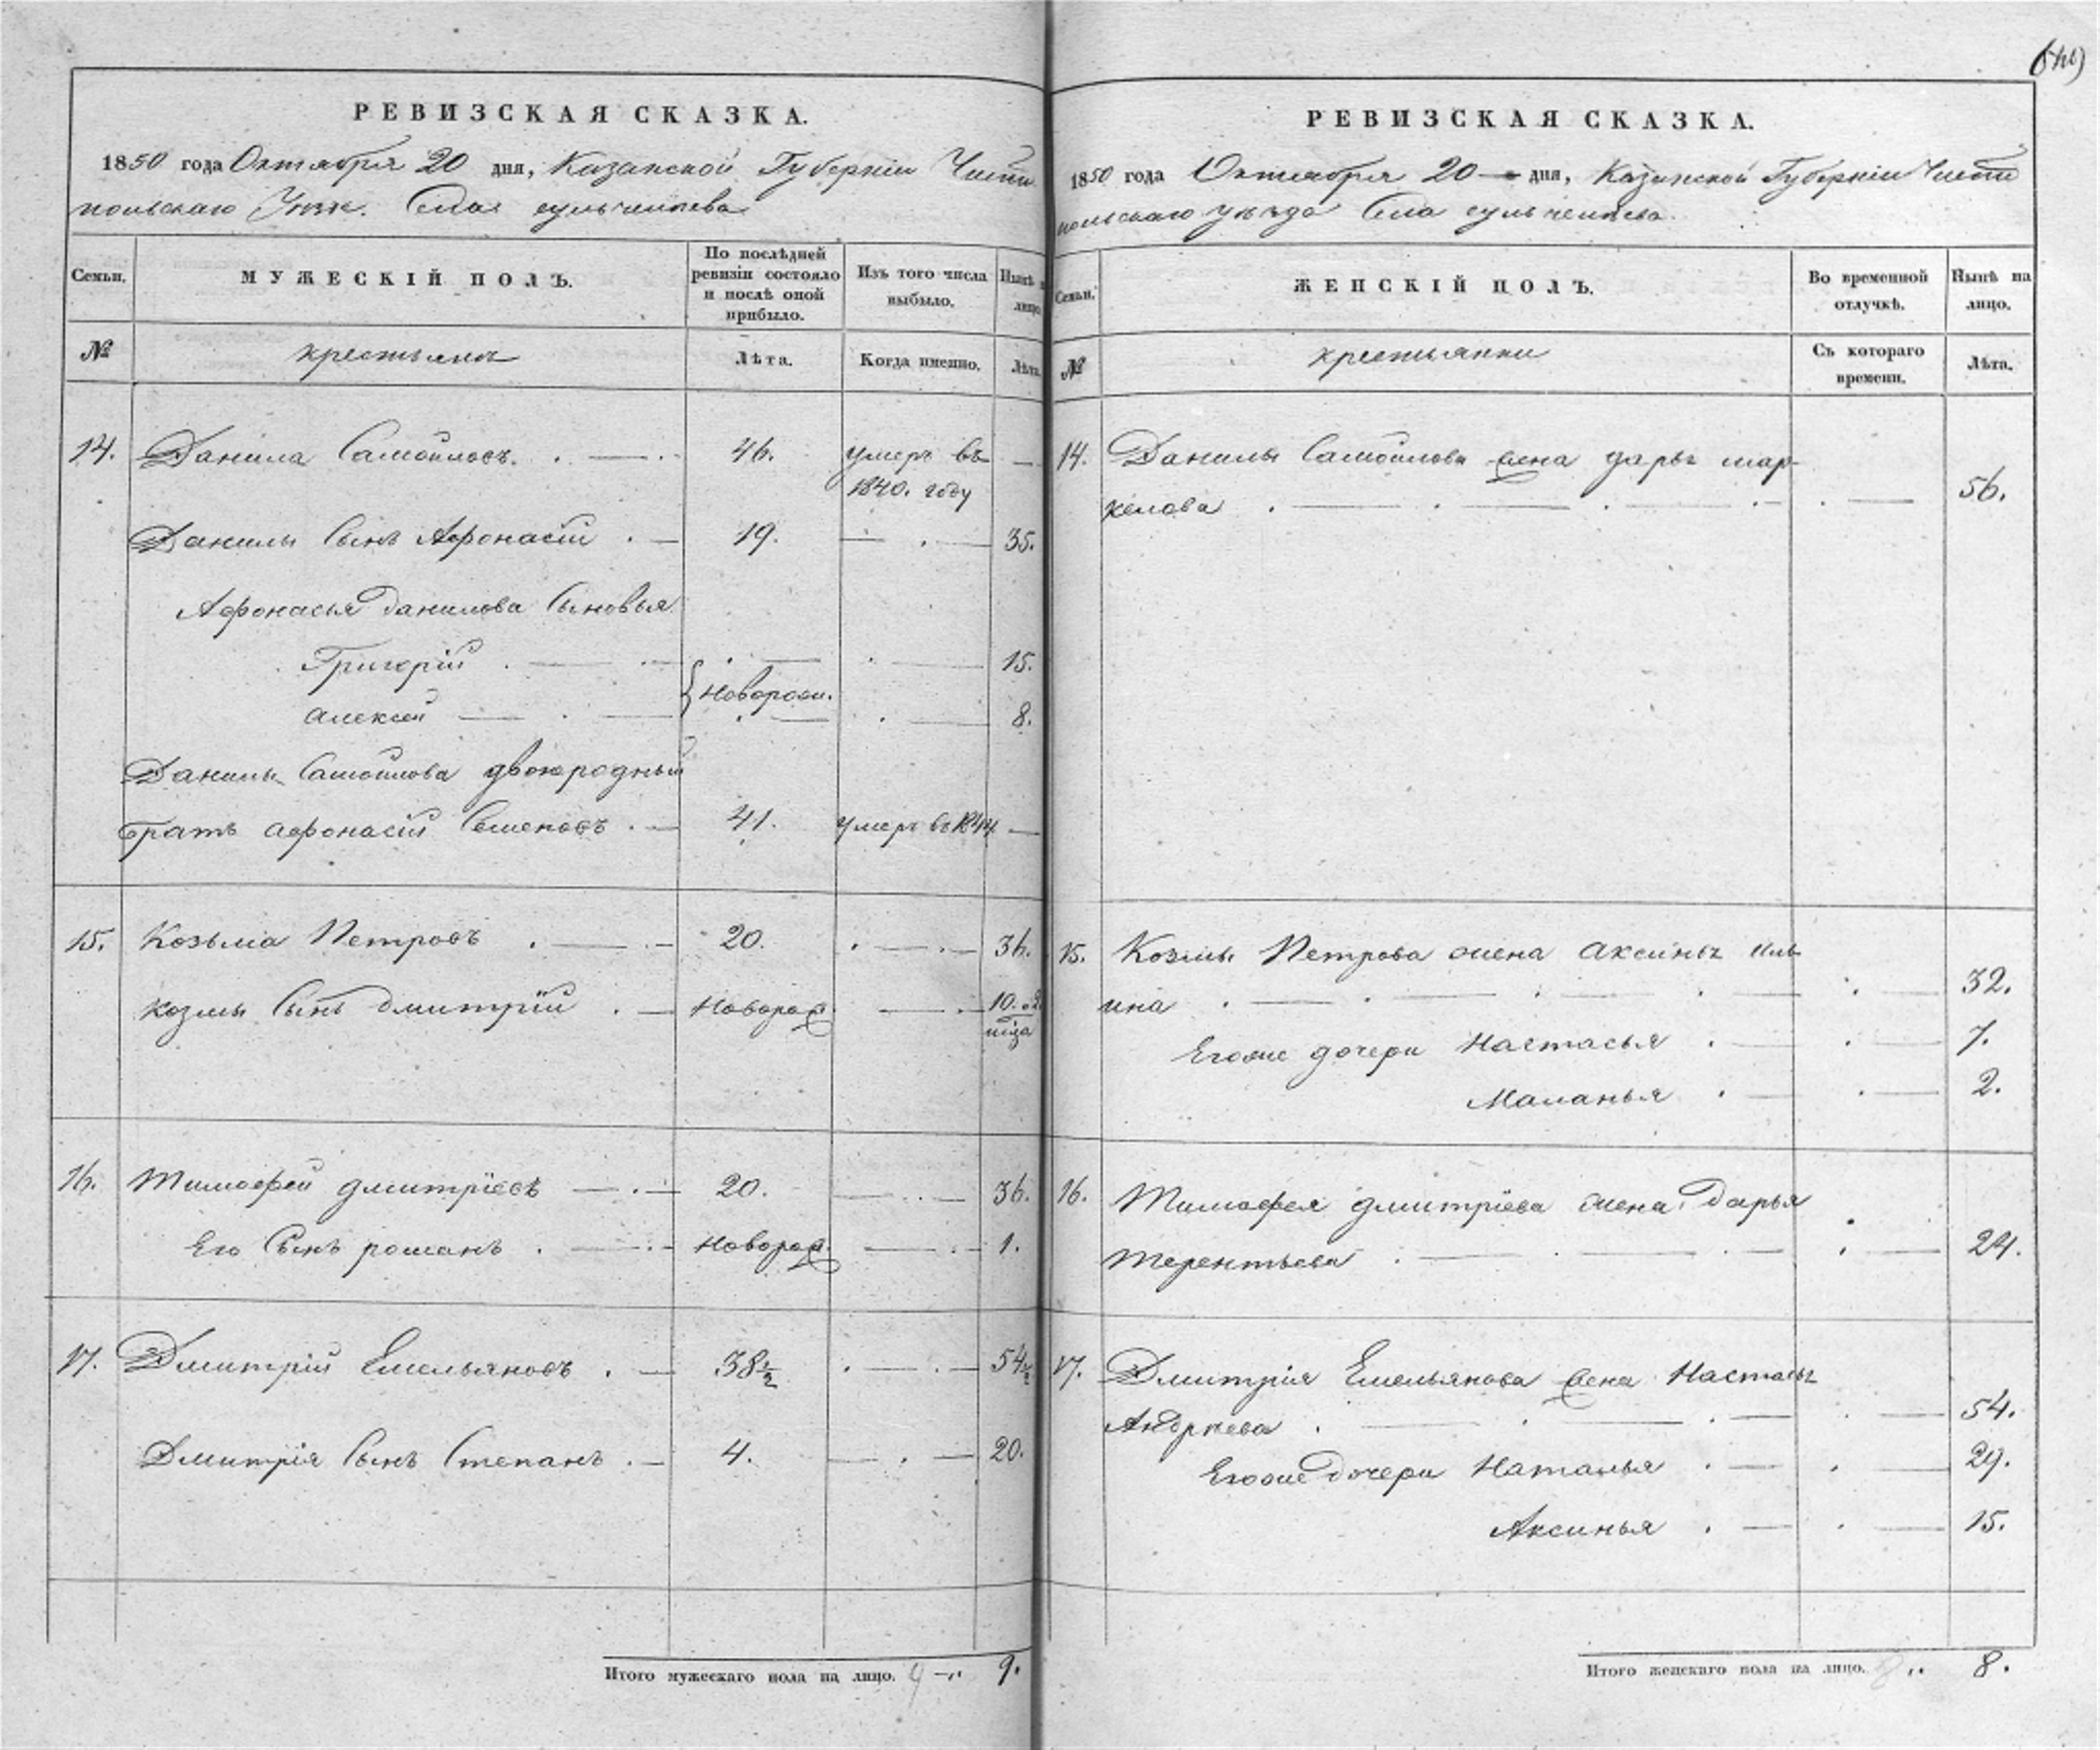 РЕВИЗСКАЯ СКАЗКА.
1850 года Октября 20 дня, Казанской Губерніи Чисто
польскаго Уѣзд. Села сульчипева
Семьи.
МУЖЕСКІЙ ПОЛЪ.
По послѣдней ревизіи состояло и послѣ оной прибыло.
Изъ того числа выбыло.
Нынѣ на лицо.
№
крестьянъ
Лѣта.
Когда именно.
Лѣта.
14. Данила Самойловъ. 46. умеръ въ
1840. году
Данилы Сынъ Афонасій 19. 35.
Афонасья Данилова Сыновья
Григорій 15.
Новорож.
Алексей 8.
Данилы Самойлова двоюродный
братъ Афонасій Семеновъ 41. умеръ въ 1844.
15. Козьма Петровъ 20. 36.
Козмы Сынъ Дмитрій Новорож. 10.
16. Тимофей Дмитріевъ 20. 36.
Его Сынъ романъ Новорож. 1.
17. Дмитрій Емельяновъ 38½ 54½
Дмитрія Сынъ Степанъ 4. 20.
Итого мужескаго пола на лицо. 9 9.
РЕВИЗСКАЯ СКАЗКА.
1850 года Октября 20 дня, Казанской Губерніи Чисто
польскаго уѣзда Села сульчепева.
Семьи.
ЖЕНСКІЙ ПОЛЪ.
Во временной отлучкѣ.
Нынѣ на лицо.
№
крестьянки
Съ котораго времени.
Лѣта.
14. Данилы Самойлова жена дарья мар-
келова 56.
15. Козмы Петрова жена Аксинья иль
ина 32.
Егоже дочери Настасья 7.
Маланья 2.
16. Тимофея дмитріева жена Дарья
терентьева 24.
17. Дмитрія Емельянова жена Настасья
Андрѣева 54.
Егоже Дочери Наталья 29.
Аксинья 15.
Итого женскаго пола на лицо. 8 8.